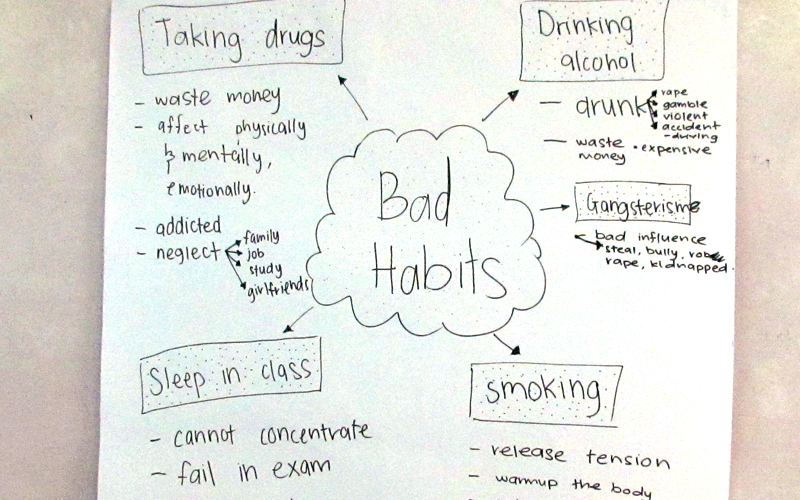 Taking drugs
- waste money
- affect physically
& mentally,
emotionally.
- addicted
- neglect
family
job
study
girlfriends
Drinking
alcohol
- drunk
rape
gamble
violent
accident
- driving
- waste
money
• expensive
Gangsterisme
bad influence
steal, bully,
rape, kidnapped.
Bad
Habits
Sleep in class
- cannot concentrate
- fail in exam
smoking
- release tension
- warmup the body